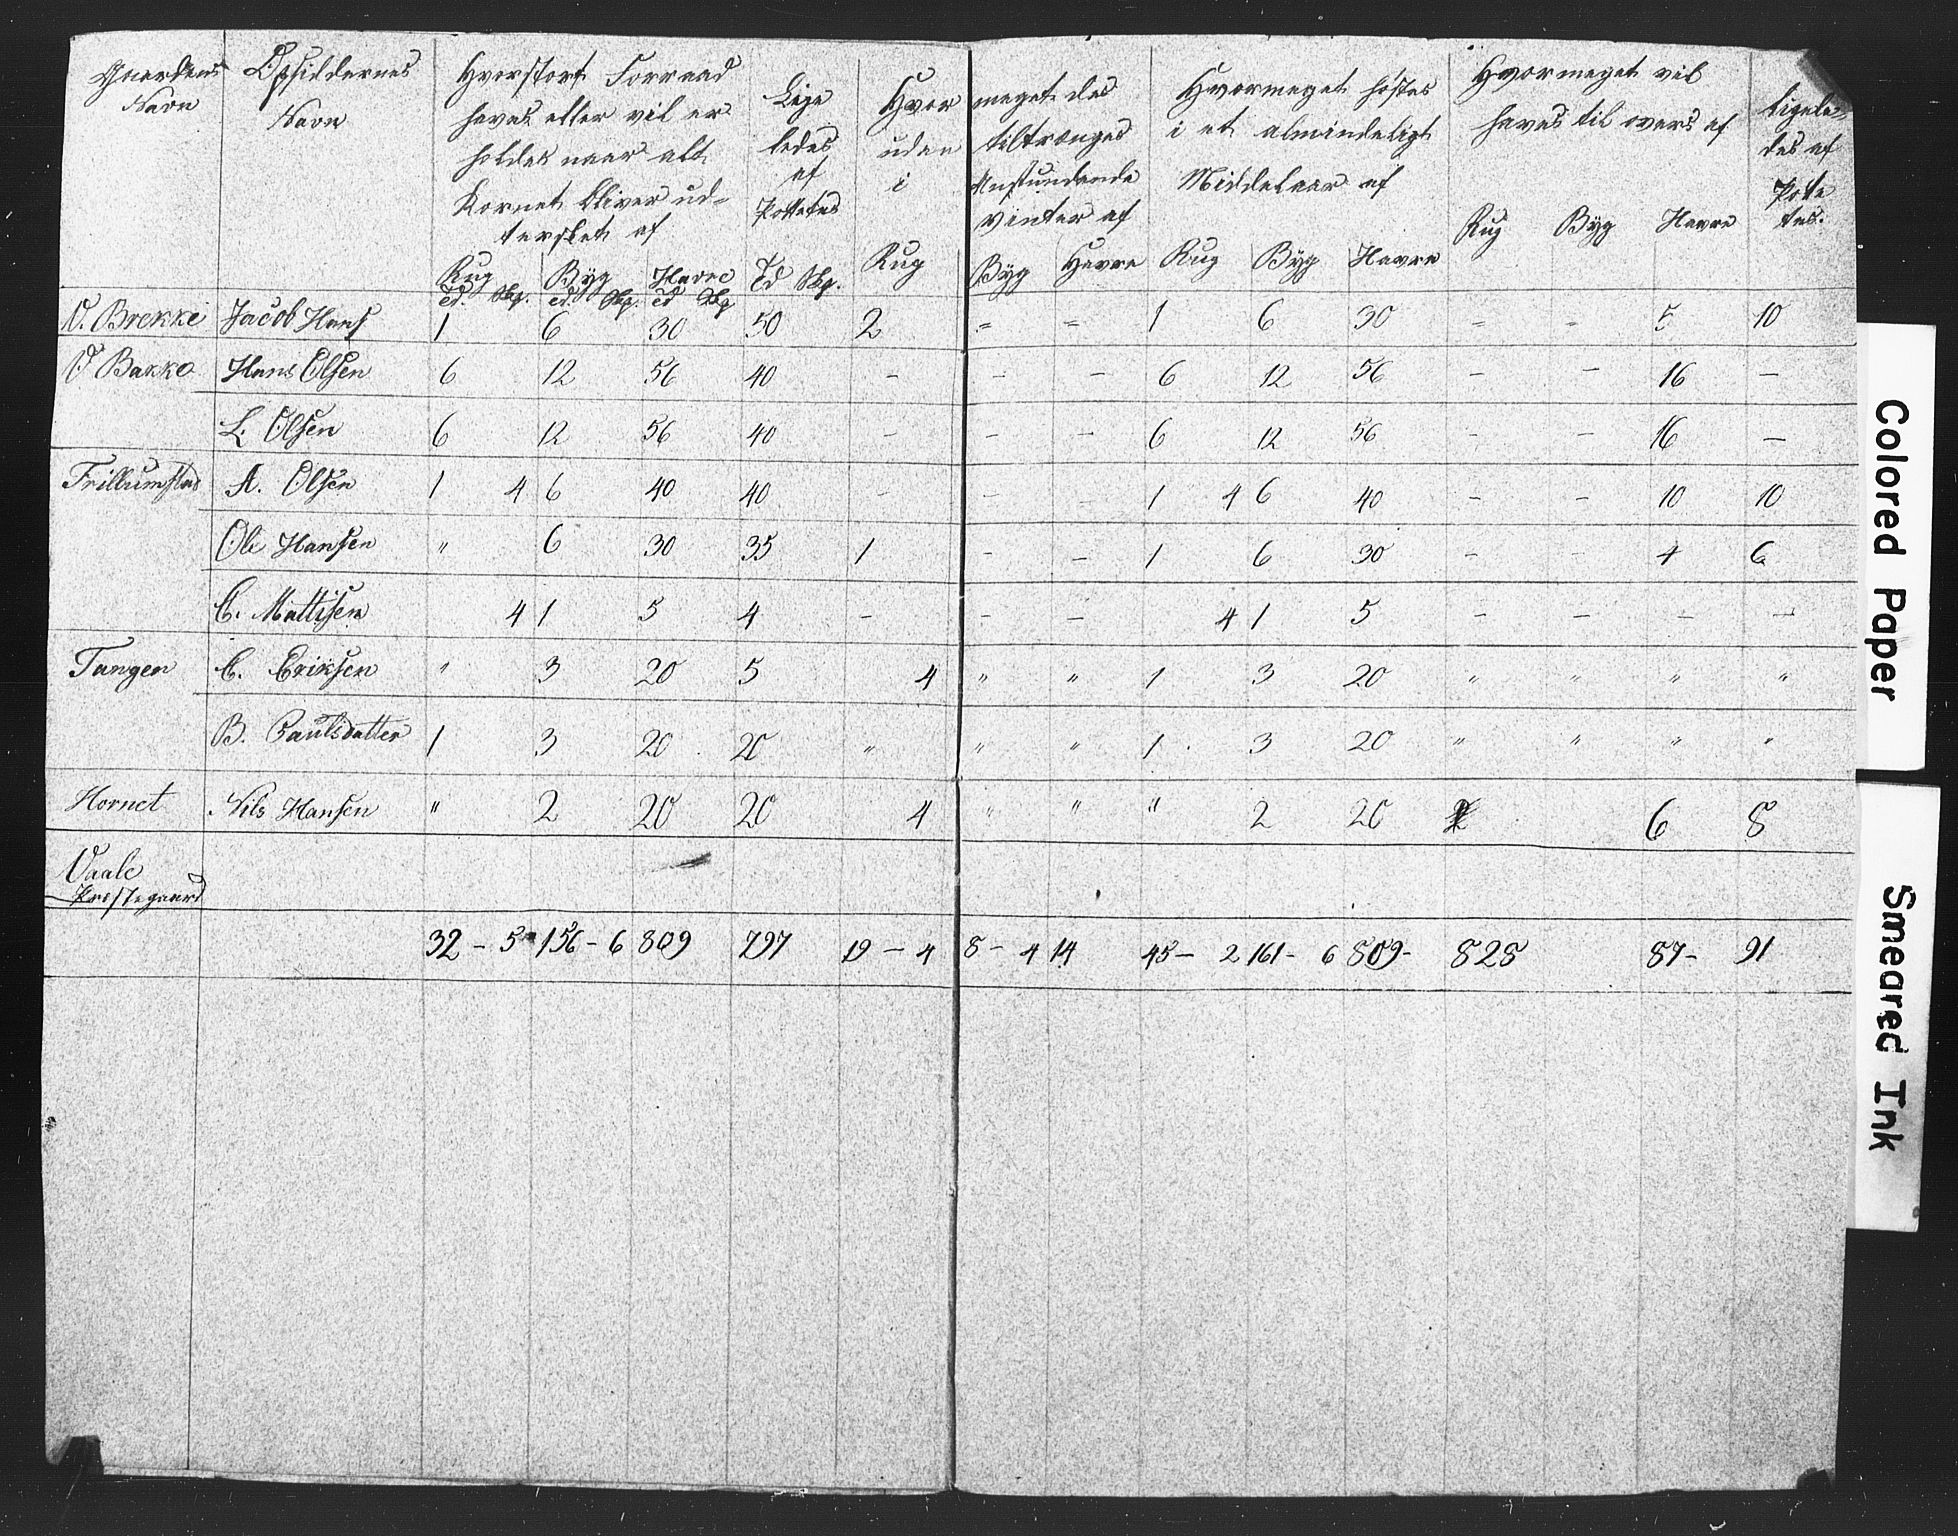 Gaardens Navn | Opsiddernes Navn | Hvorstort Forraad haves eller vil er holdes naar alt Kornet bliver ud= tersket af | Lige ledes af Pottetes | Hvor meget des uden tiltrænges i Anstundende Vinter af | Hvormeget høstes i et almindeligt Middelaar af | Hvormeget vil haves til overs af | ligele= des af Pote tes.
Rug Td. Skp. | Byg Td. Skp. | Havre Td Skp | Td Skp. | Rug | Byg | Havre | Rug | Byg | Havre | Rug | Byg | Havre
V. Brekke | Jacob Hans | 1 | 6 | 30 | 50 | 2 | " | " | 1 | 6 | 30 | " | " | 5 | 10
V Bakke | Hans Olsen | 6 | 12 | 56 | 40 | - | - | - | 6 | 12 | 56 | - | - | 16 | -
L. Olsen | 6 | 12 | 56 | 40 | - | - | - | 6 | 12 | 56 | - | - | 16 | -
Trillumstad | A. Olsen | 1 4 | 6 | 40 | 40 | - | - | - | 1 4 | 6 | 40 | - | - | 10 | 10
Ole Hansen | " | 6 | 30 | 35 | 1 | - | - | 1 | 6 | 30 | - | - | 4 | 6
C. Mattisen | 4 | 1 | 5 | 4 | - | - | - | 4 | 1 | 5 | - | - | - | -
Tangen | C. Eriksen | " | 3 | 20 | 5 | 4 | " | " | 1 | 3 | 20 | " | " | " | "
B. Paulsdatter | 1 | 3 | 20 | 20 | " | " | " | 1 | 3 | 20 | " | " | " | "
Hornet | Nils Hansen | " | 2 | 20 | 20 | 4 | " | " | " | 2 | 20 | | | 6 | 8
Vaale
Prestegaard
32 - 5 | 156 - 6 | 809 | 797 | 19 - 4 | 8 - 4 | 14 | 45 - 2 | 161 - 6 | 809 - | 828 | | 87 - | 91
Colored Paper
Smeared Ink